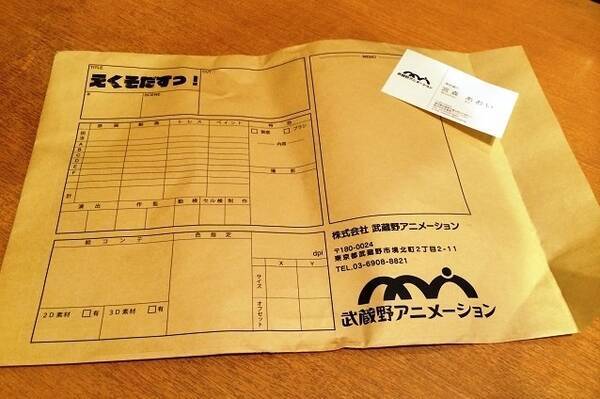 TITLE
えくそだすっ!
CUT
#
SCENE
MEMO
原画
動画
トレス
ペイント
特効
A
B
C
D
E
F
計
特効
ブラシ
内容
撮影
演出
作監
動検
セル検
制作
絵コンテ
色指定
dpi
X
Y
サイズ
オフセット
2D素材 有
3D素材 有
株式会社 武蔵野アニメーション
〒180-0024
東京都武蔵野市境北町2丁目2-11
TEL.03-6908-8821
武蔵野アニメーション
武蔵野アニメーション
宮森 あおい